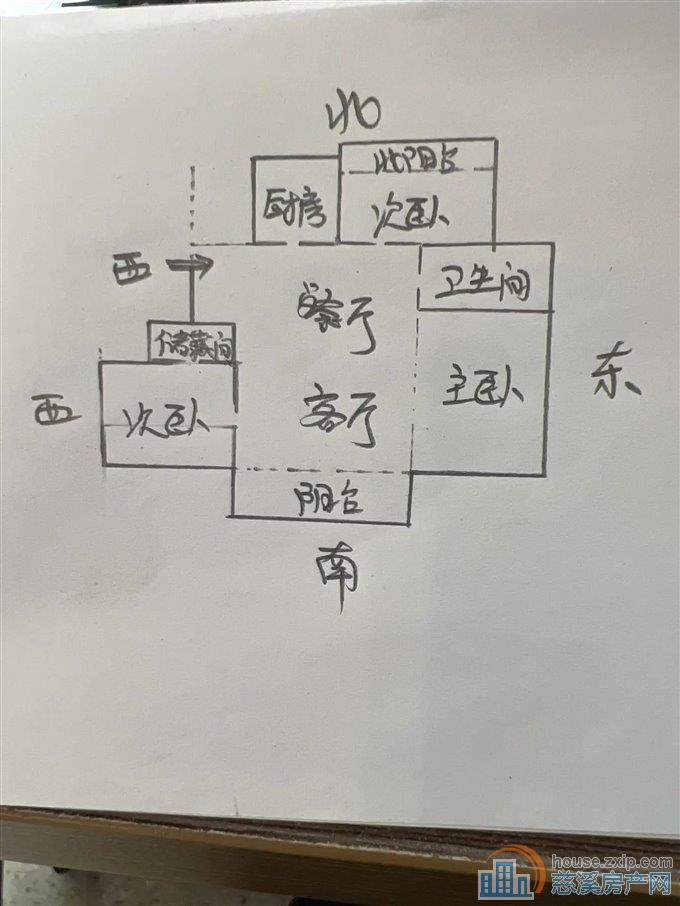 北
北阳台
厨房
次卧
西
卫生间
餐厅
储藏间
主卧
东
西
次卧
客厅
阳台
南
house.zxip.com
慈溪房产网